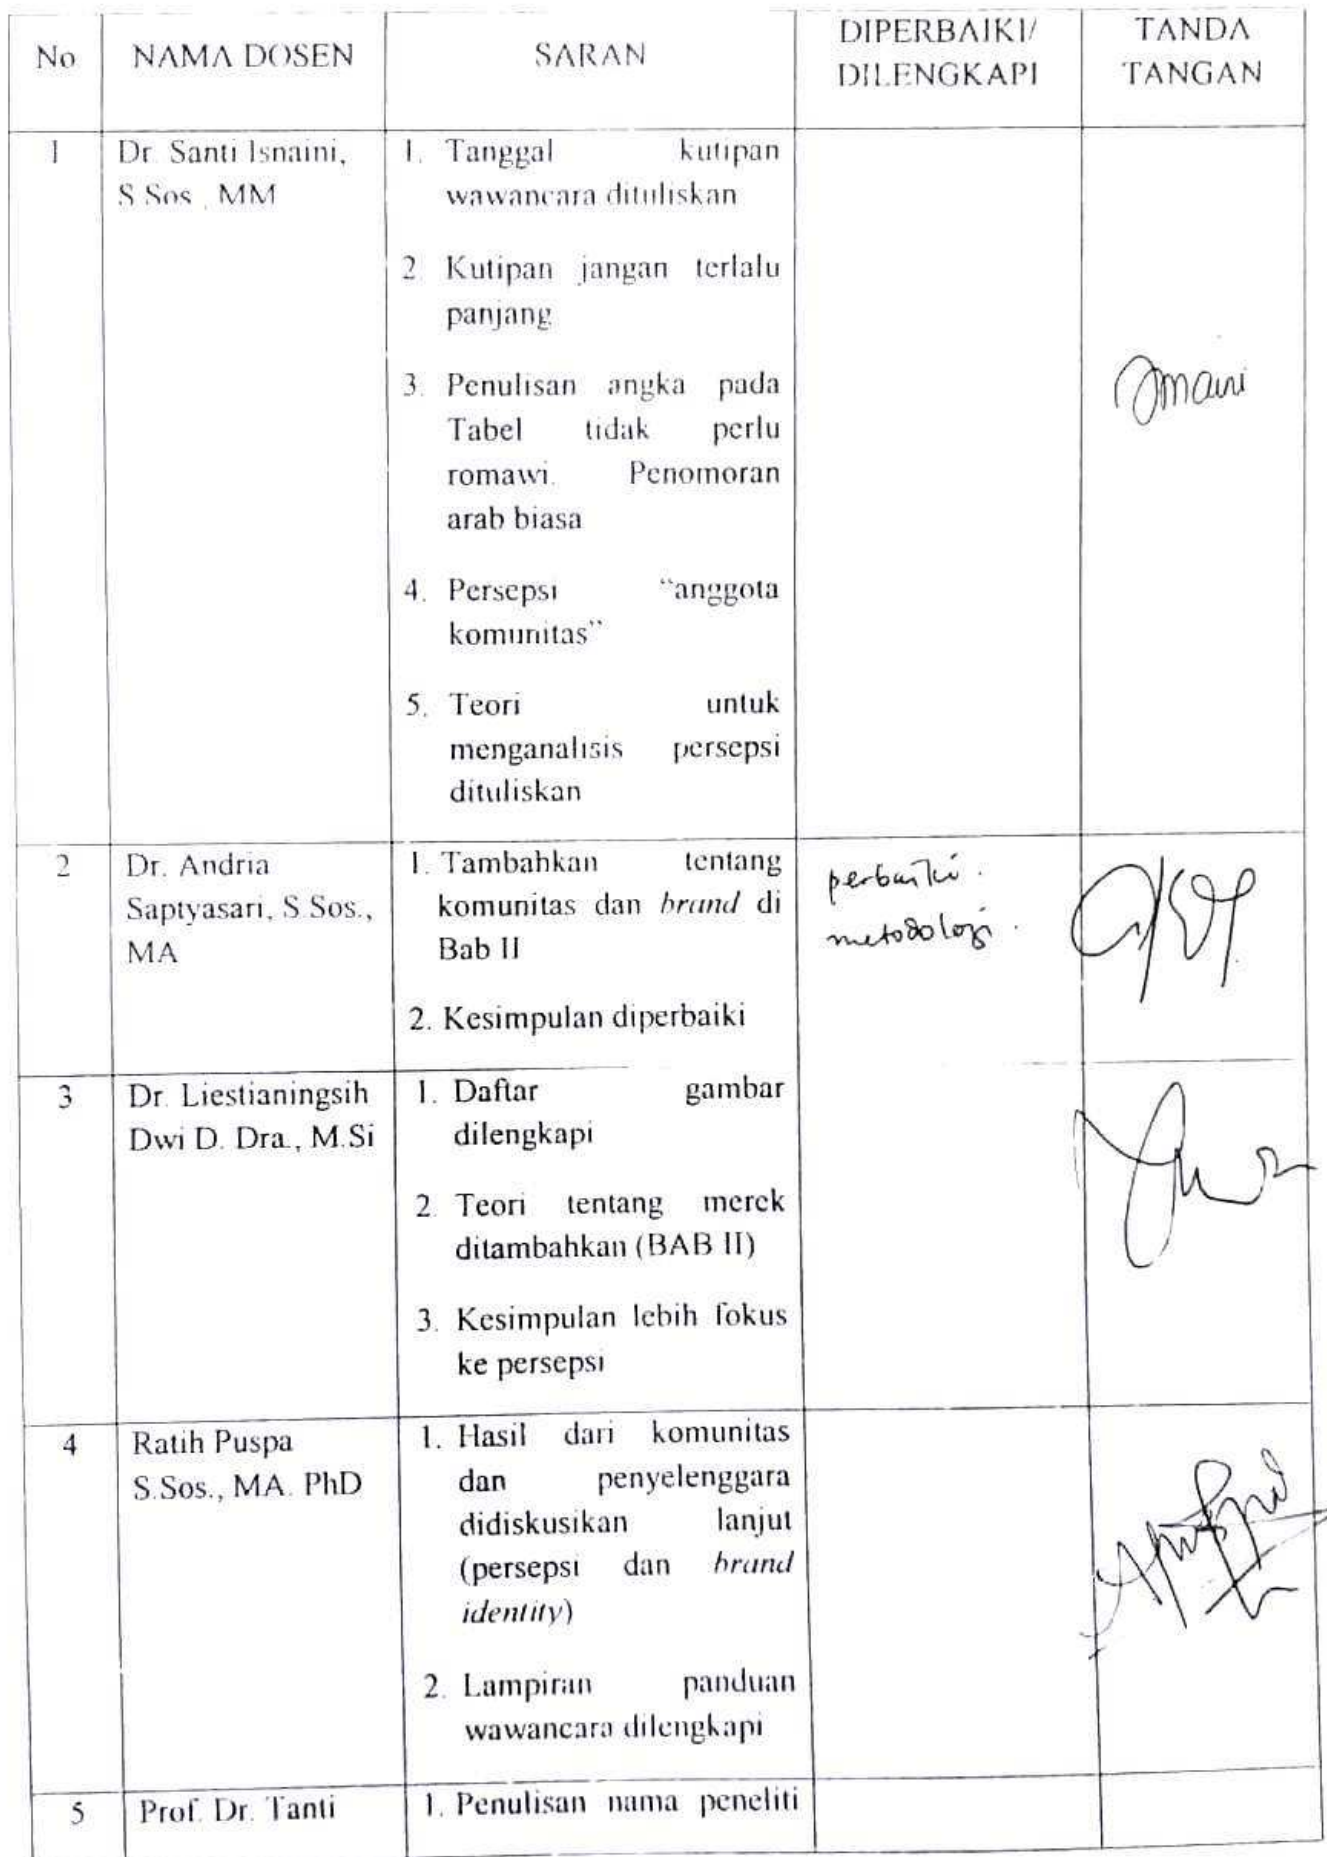 No
NAMA DOSEN
SARAN
DIPERBAIKI/
DILENGKAPI
TANDA
TANGAN
1
Dr. Santi Isnaini,
S.Sos., MM
1. Tanggal kutipan
wawancara dituliskan
2. Kutipan jangan terlalu
panjang
3. Penulisan angka pada
Tabel tidak perlu
romawi. Penomoran
arab biasa
4. Persepsi “anggota
komunitas”
5. Teori untuk
menganalisis persepsi
dituliskan
2
Dr. Andria
Saptyasari, S.Sos.,
MA
1. Tambahkan tentang
komunitas dan brand di
Bab II
2. Kesimpulan diperbaiki
perbaiki.
metodologi.
3
Dr. Liestianingsih
Dwi D. Dra., M.Si
1. Daftar gambar
dilengkapi
2. Teori tentang merek
ditambahkan (BAB II)
3. Kesimpulan lebih fokus
ke persepsi
4
Ratih Puspa
S.Sos., MA. PhD
1. Hasil dari komunitas
dan penyelenggara
didiskusikan lanjut
(persepsi dan brand
identity)
2. Lampiran panduan
wawancara dilengkapi
5
Prof. Dr. Tanti
1. Penulisan nama peneliti